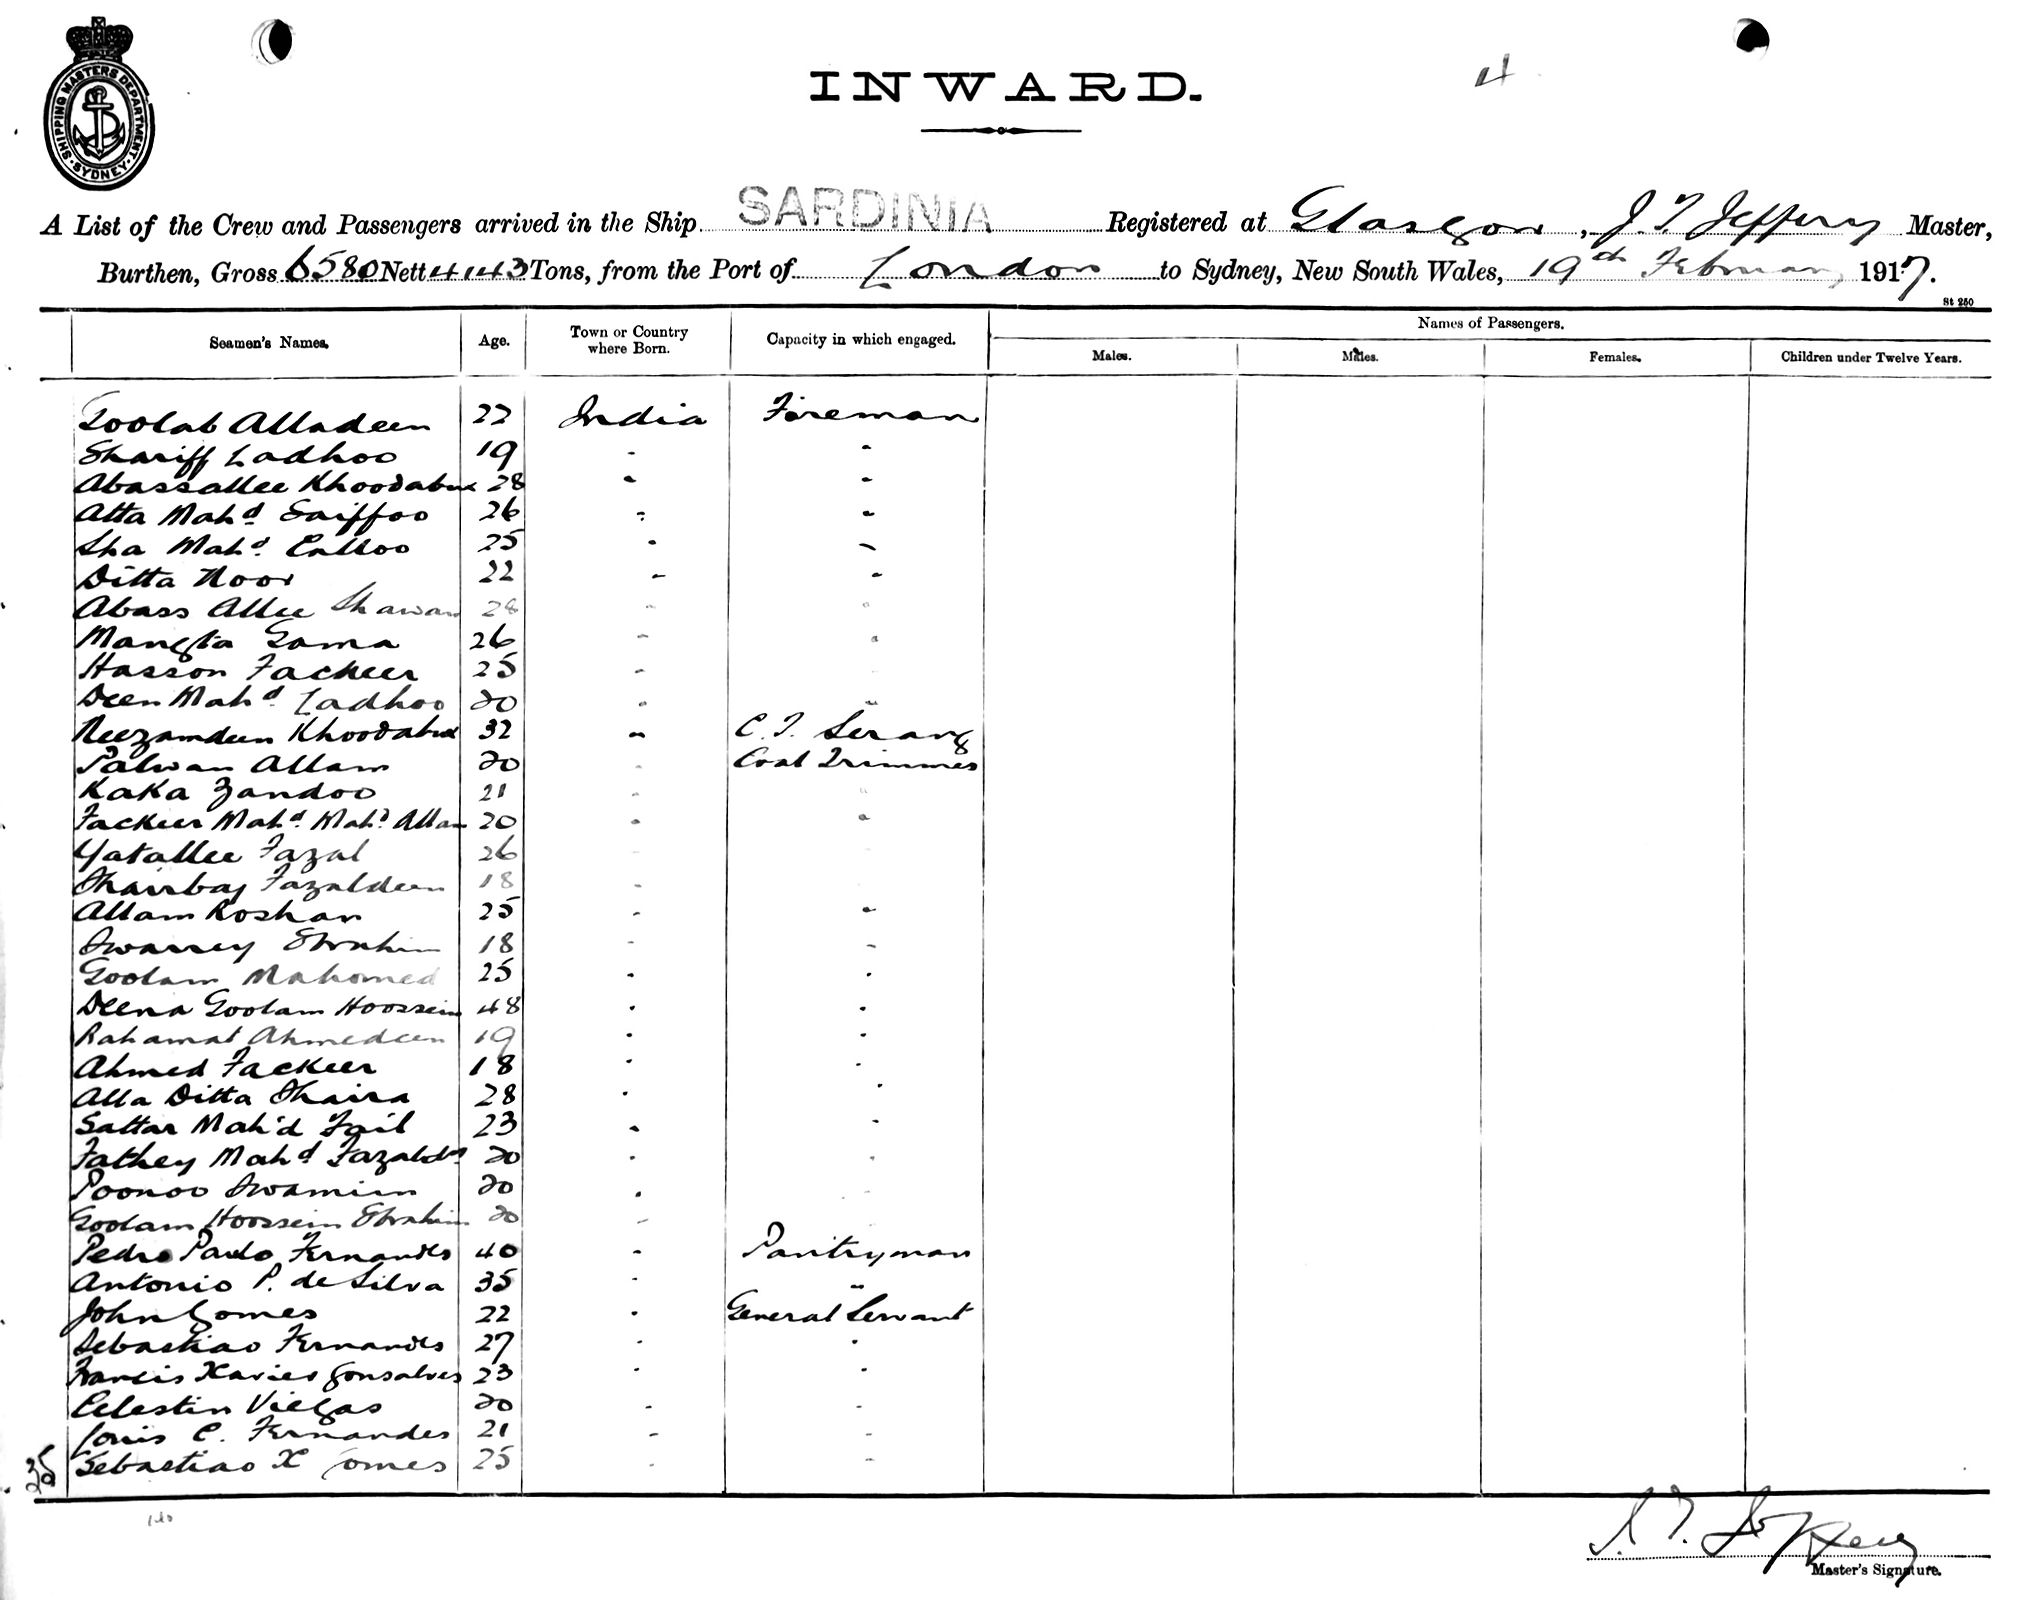 4
INWARD.
SHIPPING MASTERS DEPARTMENT. SYDNEY
A List of the Crew and Passengers arrived in the Ship SARDINIA Registered at Glasgow, J. T. Jeffery Master,
Burthen, Gross 6580 Nett 4143 Tons, from the Port of London to Sydney, New South Wales, 19th February 1917.
St 250
Seamen's Names. Age. Town or Country where Born. Capacity in which engaged. Names of Passengers.
Males. Males. Females. Children under Twelve Years.
Goolab Alladeen 22 India Fireman
Shariff Ladhoo 19 " "
Abassallee Khoodabux 28 " "
Atta Mahd Saiffoo 26 " "
Sha Mahd Calloo 25 " "
Ditta Noor 22 " "
Abass Allee Shawan 28 " "
Mangta Gama 26 " "
Hasson Fackeer 25 "
Deen Mahd Ladhoo 20 " "
Neezamdeen Khoodabux 32 " C. T. Serang
Palwan Allam 20 " Coal Trimmer
Kaka Zandoo 21 " "
Fackeer Mahd Mahd Allam 20 " "
Yatallee Fazal 26
Shairbaz Fazaldeen 18 "
Allam Roshan 25 " "
Swarrey Ebrahim 18 " "
Goolam Mahomed 25 " "
Deena Goolam Hoossein 48 " "
Rahamat Ahmedeen 19 " "
Ahmed Fackeer 18 " "
Alla Ditta Shaira 28 " "
Sattar Mah'd Fail 23 " "
Fathey Mahd Fazaldn 20 " "
Poonoo Swamien 20 "
Goolam Hoossein Ebrahim 20 "
Pedro Paulo Fernandes 40 " Pantryman
Antonio P. de Silva 35 " "
John Gomes 22 " General Servant
Sebastiao Fernandes 27 " "
Francis Xavier Gonsalves 23 " "
Celestin Viegas 20 " "
Louis C. Fernandes 21 " "
35 Sebastiao X Gomes 25 " "
140
J. T. Jeffery
Master's Signature.